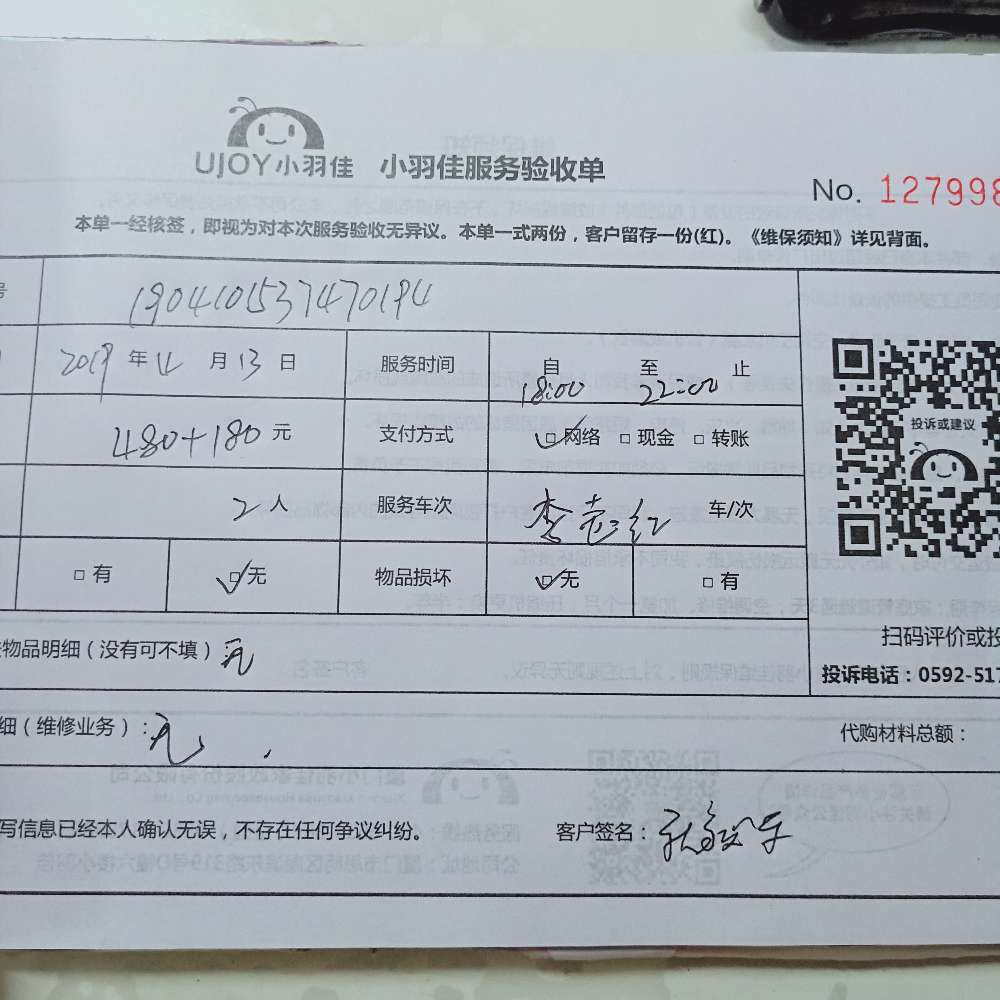 UJOY小羽佳 小羽佳服务验收单
No. 127998
本单一经核签，即视为对本次服务验收无异议。本单一式两份，客户留存一份(红)。《维保须知》详见背面。
号 1904101537470194
2019 年 4 月 13 日 服务时间 自 18:00 至 22:00 止
480+180 元 支付方式 ☑网络 □现金 □转账
投诉或建议
2 人 服务车次 车/次
□有 ☑无 物品损坏 ☑无 □有
物品明细（没有可不填） 无
扫码评价或投
投诉电话：0592-517
细（维修业务）：无 代购材料总额：
写信息已经本人确认无误，不存在任何争议纠纷。 客户签名：